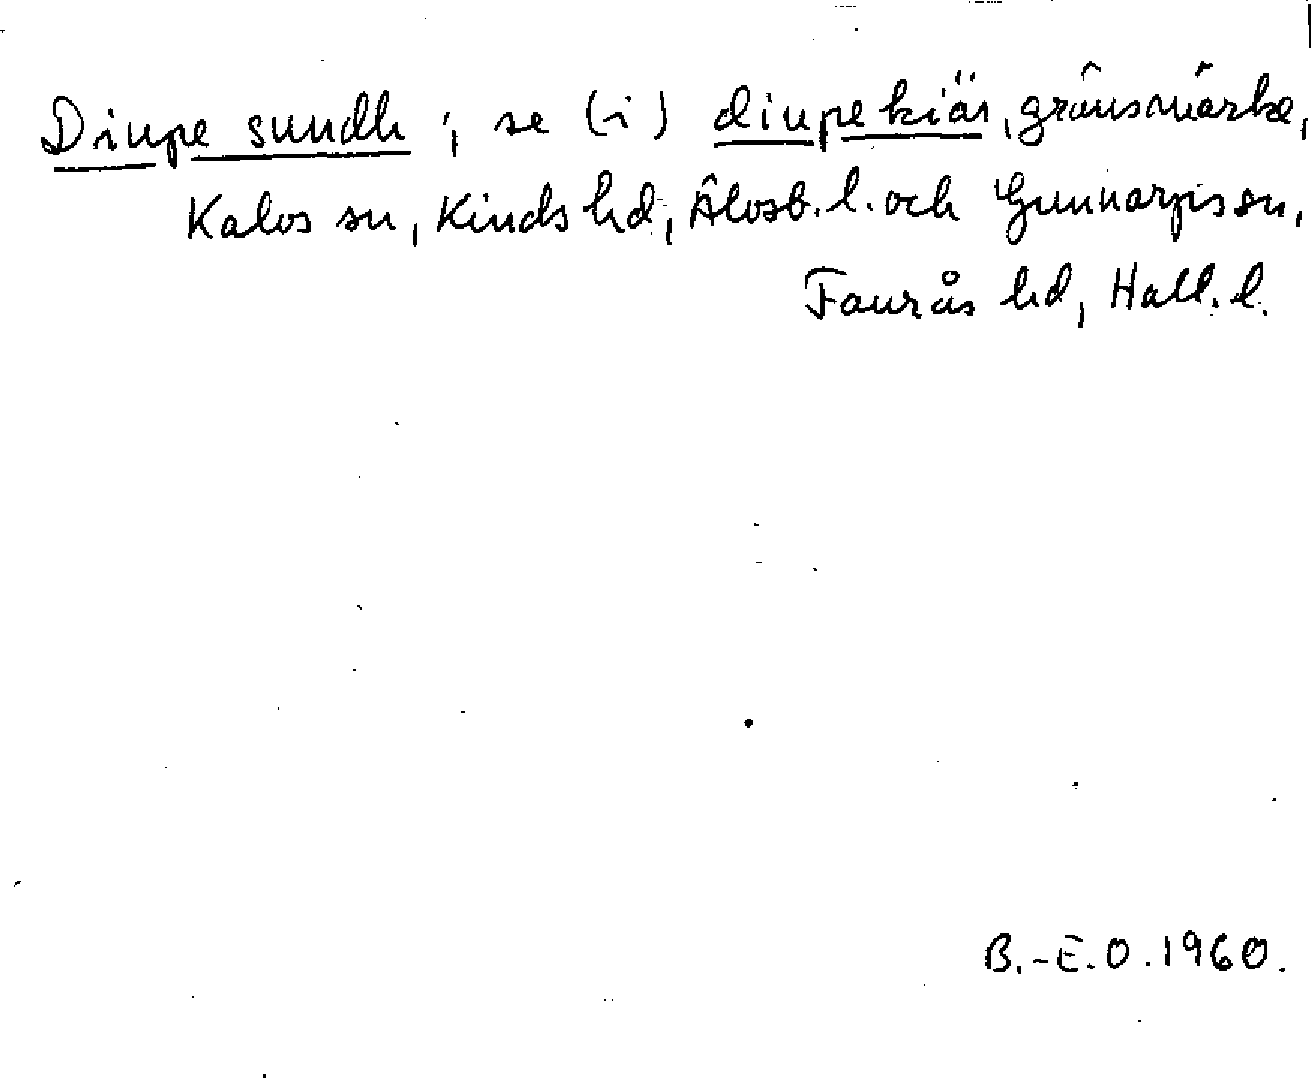 Diupe sundh ; se (i) diupe kiär, gränsmärke,
Kalvs sn, Kinds hd, Älvsb. l. och Gunnarps sn,
Faurås hd, Hall. l.
B.-E.O. 1960.